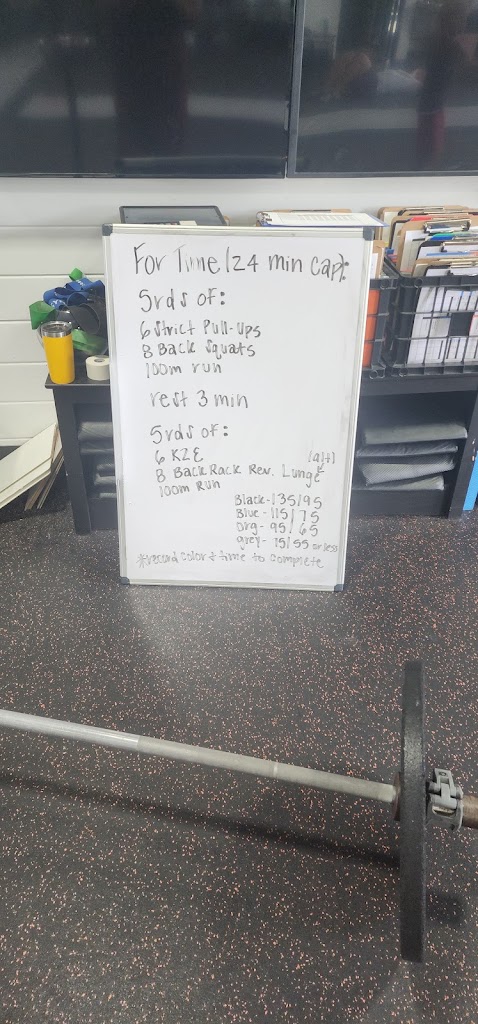 For Time (24 min cap):
5rds of:
6 Strict Pull-Ups
8 Back Squats
100m run
rest 3 min
5rds of:
6 K2E
8 Back Rack Rev. Lunge (alt)
100m Run
Black-135/95
Blue-115/75
Org-95/65
grey-75/55 or less
*record color & time to complete